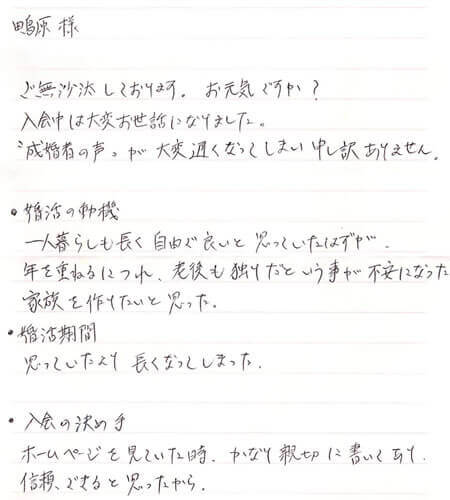 鴫原 様
ご無沙汰しております。お元気ですか？
入会中は大変お世話になりました。
“成婚者の声”が大変遅くなってしまい申し訳ありません。
• 婚活の動機
一人暮らしも長く自由で良いと思っていたはずが、
年を重ねるにつれ、老後も独りだという事が不安になった
家族を作りたいと思った。
• 婚活期間
思っていたより長くなってしまった。
• 入会の決め手
ホームページを見ていた時、かなり親切に書いてあり、
信頼できると思ったから。